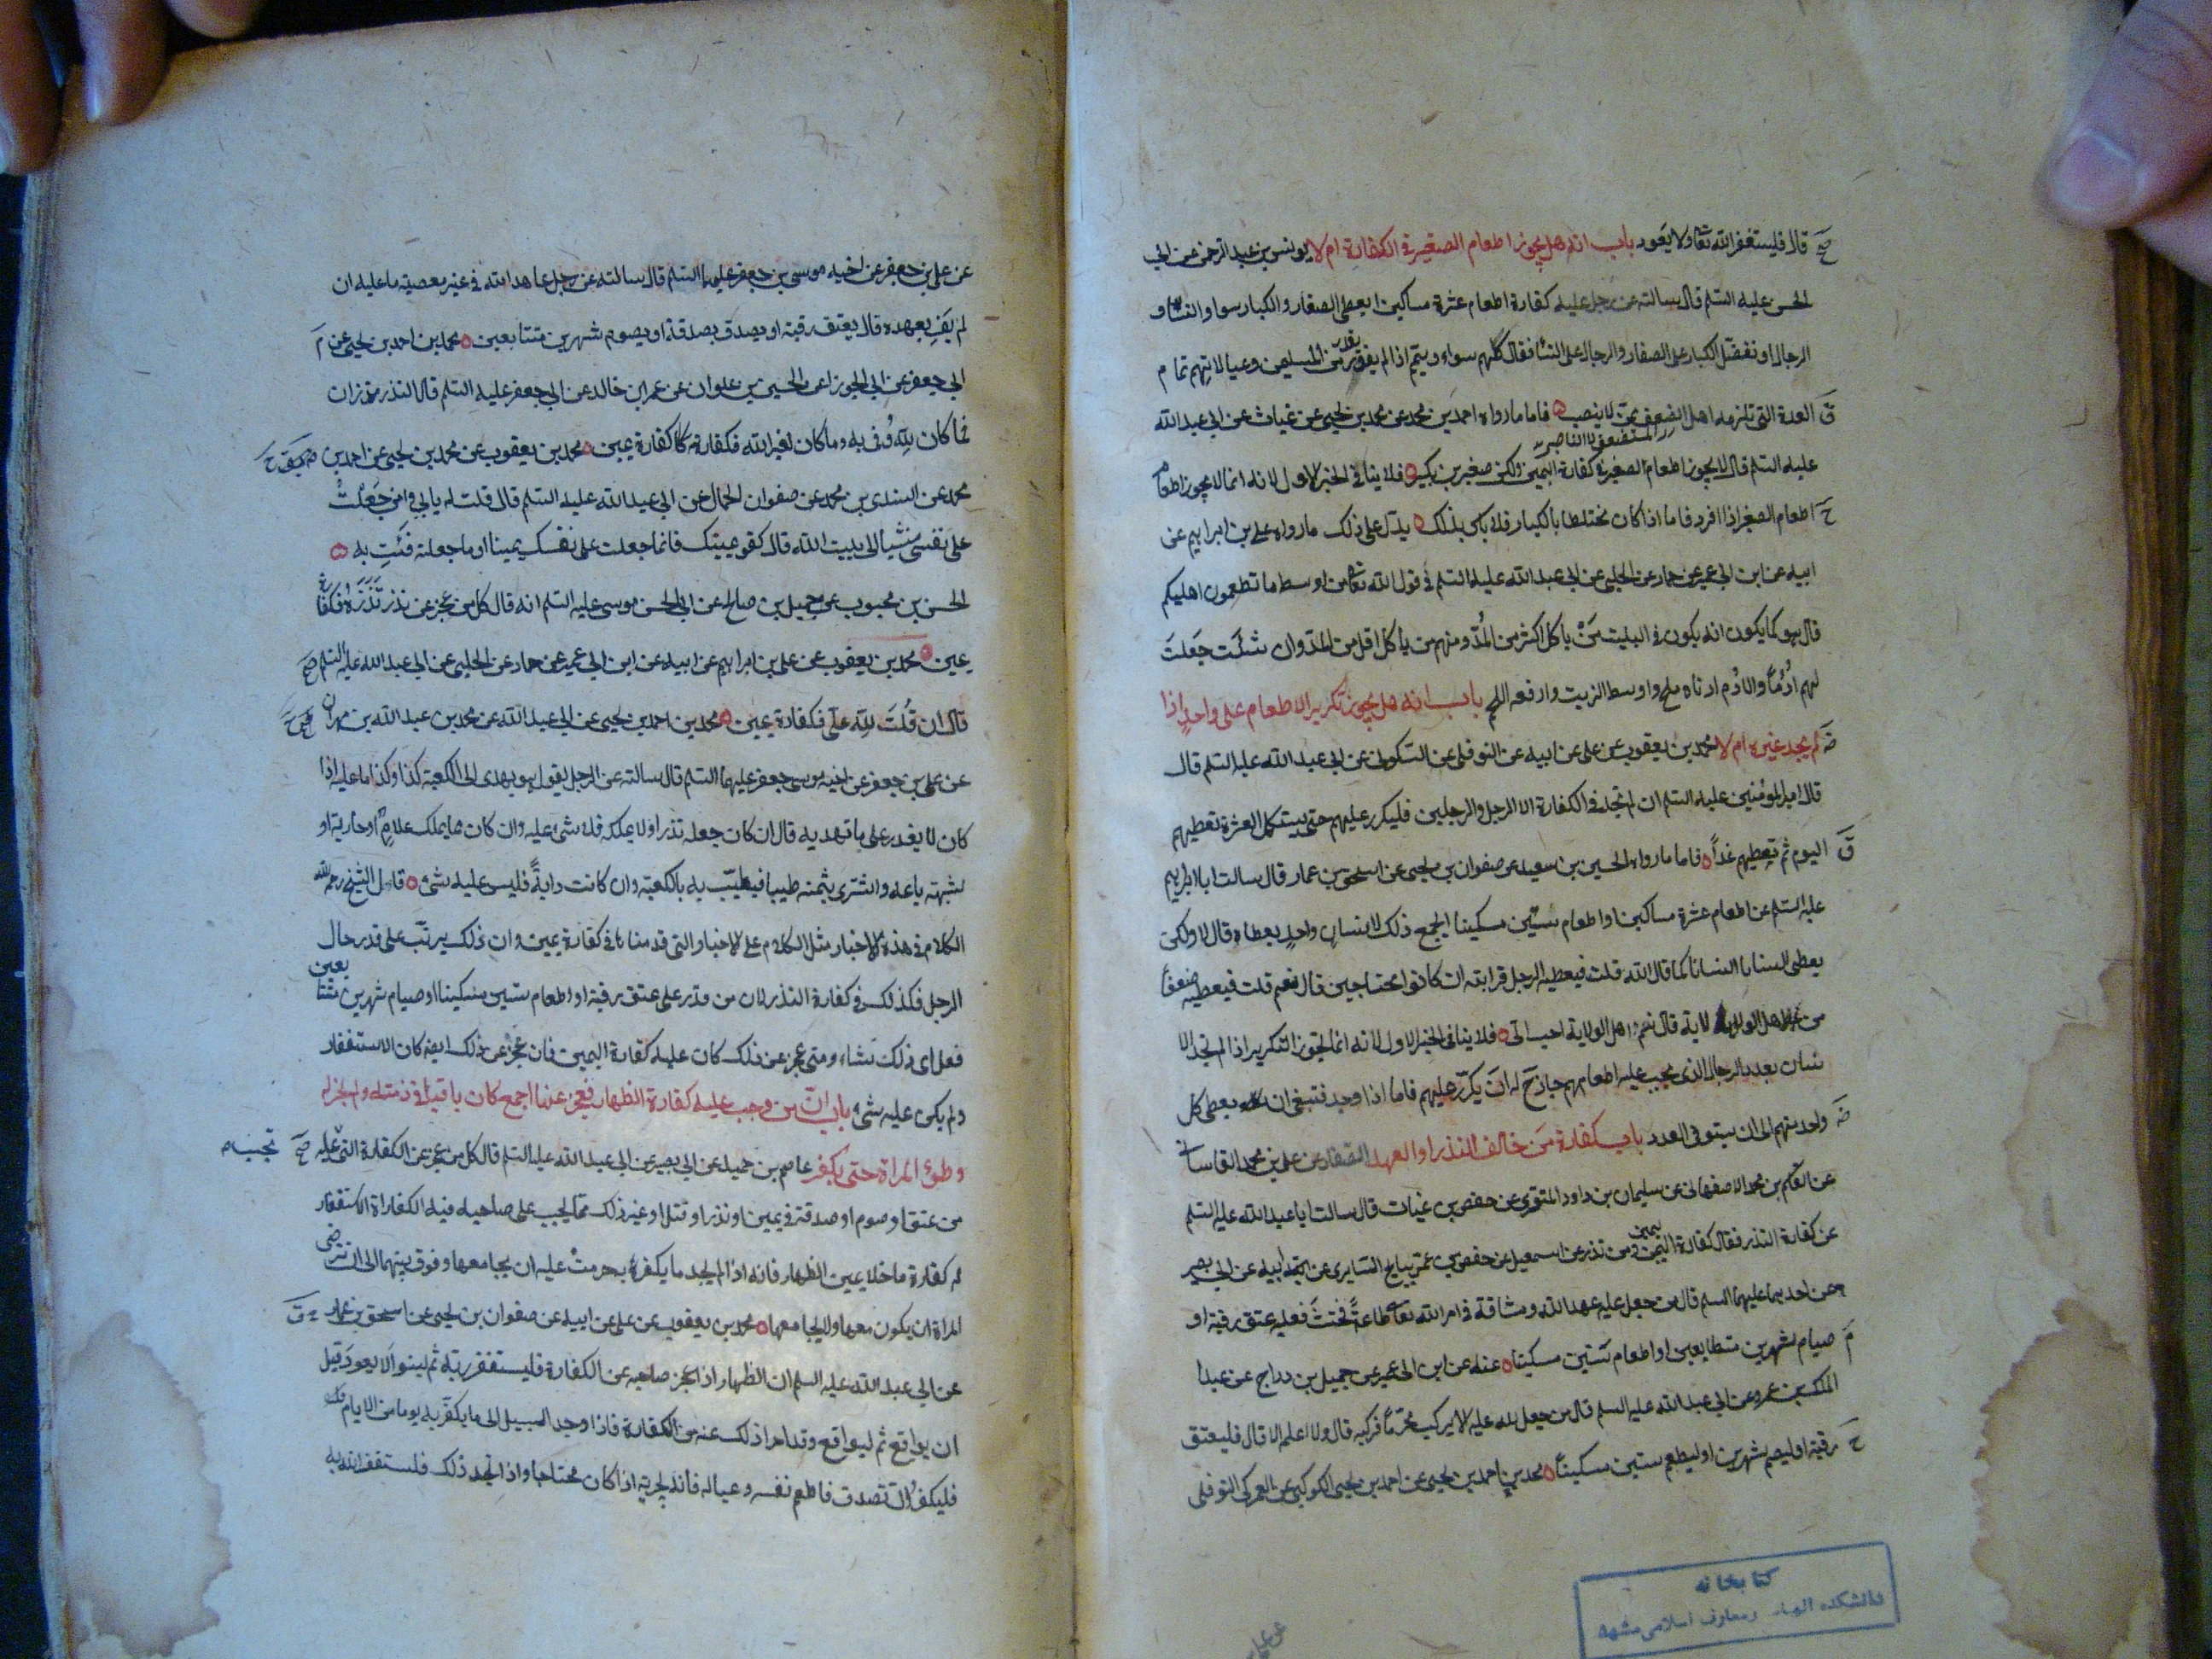 قال فليستغفر الله تعا ولا يعود باب انه هل يجوز اطعام الصغير في الكفارة ام لا يونس بن عبد الرحمن عن ابي
الحسن عليه السلم قال سالته عن رجل عليه كفارة اطعام عشرة مساكين ايعطى الصغار والكبار سوا والنسا و
الرجال او نفضل الكبار على الصغار والرجال على النسا فقال كلهم سواء ويتمم اذا لم يقدر من المسلمين وعيالاتهم تمام
العدة التي تلزمه اهل الضعف ممن لا ينصب فاما ما رواه احمد بن محمد عن محمد بن يحيى عن غياث عن ابي عبد الله
عليه السلم قال لا يجوز اطعام الصغير في كفارة اليمين ولكن صغيرين بكبير فلا ينافي الخبر الاول لانه انما لا يجوز اطعام
اطعام الصغير اذا افرد فاما اذا كان مختلطا بالكبار فلا باس بذلك يدل على ذلك ما رواه علي بن ابراهيم عن
ابيه عن ابن ابي عمير عن حماد عن الحلبي عن ابي عبد الله عليه السلم في قول الله تعا من اوسط ما تطعمون اهليكم
قال هو كما يكون انه يكون في البيت من ياكل اكثر من المد ومنهم من ياكل اقل من المد وان شئت جعلت
لهم ادما والادم ادناه ملح واوسط الزيت وارفعه اللحم باب انه هل يجوز تكرير الاطعام على واحد اذا
لم يجد غيره ام لا محمد بن يعقوب عن علي عن ابيه عن النوفلي عن السكوني عن ابي عبد الله عليه السلم قال
قال امير المومنين عليه السلم ان لم تجد في الكفارة الا الرجل والرجلين فليكرر عليهم حتى يستكمل العشرة تعطيهم
اليوم ثم تعطيهم غداً فاما ما رواه الحسين بن سعيد عن صفوان بن يحيى عن اسحق بن عمار قال سالت ابا ابراهيم
عليه السلم عن اطعام عشرة مساكين او اطعام ستين مسكينا ايجمع ذلك لانسان واحد يعطاه قال لا ولكن
يعطى انسانا انسانا كما قال الله قلت فيعطيه الرجل قرابته ان كانوا محتاجين قال نعم قلت فيعطيه ضعفا
من غير اهل الولاية قال نعم واهل الولاية احب الي فلا ينافي الخبر الاول لانه انما يجوز التكرير اذا لم تجد الا
بعدد الرجال الذي يجب عليه اطعامهم جاز له ان يكرر عليهم فاما اذا وجد فينبغي ان يعطى كل
واحد منهم الى ان يستوفي العدد باب كفارة من خالف النذر او العهد الصفار عن علي بن محمد القاساني
عن القسم بن محمد الاصفهاني عن سليمان بن داود المنقري عن حفص بن غياث قال سالت ابا عبد الله عليه السلم
عن كفارة النذر فقال كفارة اليمين ومن نذر عن اسمعيل عن حفص بن عمر بياع السابري عن ابيه عن ابي بصير
عن احدهما عليهما السلم قال من جعل عليه عهد الله وميثاقه في امر الله تعا طاعةً فحنث فعليه عتق رقبة او
صيام شهرين متتابعين او اطعام ستين مسكينا عنه عن ابن ابي عمير عن جميل بن دراج عن عبد
الملك بن عمرو عن ابي عبد الله عليه السلم قال من جعل لله عليه الا يركب محرما فركبه قال ولا اعلم الا قال فليعتق
رقبة او ليصم شهرين او ليطعم ستين مسكيناً محمد بن احمد بن يحيى عن احمد بن يحيى الكوكبي عن العمركي البوفكي
كتابخانه
دانشكده الهيات ومعارف اسلامى مشهد
عن علي بن جعفر عن اخيه موسى بن جعفر عليهما السلم قال سالته عن رجل عاهد الله في غير معصية ما عليه ان
لم يف بعهده قال يعتق رقبة او يصدق بصدقة او يصوم شهرين متتابعين محمد بن احمد بن يحيى عن
ابي جعفر عن ابي الجوزا عن الحسين بن علوان عن عمر بن خالد عن ابي جعفر عليه السلم قال النذر نذران
فما كان لله وُفي به وما كان لغير الله فكفارته كفارة يمين محمد بن يعقوب عن محمد بن يحيى عن احمد بن
محمد عن السندي بن محمد عن صفوان الجمال عن ابي عبد الله عليه السلم قال قلت له بابي وامي جعلت
على نفسي مشيا الى بيت الله قال كفر يمينك فانما جعلت على نفسك يمينا وما جعلته لله فف به
الحسن بن محبوب عن جميل بن صالح عن ابي الحسن موسى عليه السلم انه قال كل من عجز عن نذر نذره فكفارته
يمين محمد بن يعقوب عن علي بن ابراهيم عن ابيه عن ابن ابي عمير عن حماد عن الحلبي عن ابي عبد الله عليه السلم
قال ان قُلتَ لله علي فكفارة يمين محمد بن احمد بن يحيى عن ابي عبد الله عن محمد بن عبد الله بن مهران
عن علي بن جعفر عن اخيه موسى جعفر عليهما السلم قال سالته عن الرجل يقول هو يهدي الى الكعبة كذا وكذا ما عليه اذا
كان لا يقدر على ما تهديه قال ان كان جعله نذرا ولا يملكه فلا شئ عليه وان كان مما يملك غلام او جارية او
شبهه باعه واشترى بثمنه طيبا فيطيب به بالكعبة وان كانت دابةً فليس عليه شئ قال الشيخ رحمه الله
الكلام في هذه الاخبار مثل الكلام على الاخبار التي قدمناها في كفارة يمين وان ذلك يرتب على قدر حال
الرجل فكذلك في كفارة النذر لان من قدر على عتق رقبة او اطعام ستين مسكينا او صيام شهرين متتابعين
فعل اي ذلك شاء ومتى عجز عن ذلك كان عليه كفارة اليمين فان عجز عن ذلك ايضا كان الاستغفار
ولم يكن عليه شئ باب ان من وجب عليه كفارة الظهار فعجز عنها اجمع كان باقيا في ذمته ولم يجز له
وطؤ المراة حتى يكفر عاصم بن حميد عن ابي بصير عن ابي عبد الله عليه السلم قال كل من عجز عن الكفارة التي تجب عليه
من عتق او صوم او صدقة في يمين او نذر او قتل او غير ذلك مما يجب على صاحبه فيه الكفارة الاستغفار
له كفارة ما خلا يمين الظهار فانه اذا لم يجد ما يكفر به حرمت عليه ان يجامعها وفرق بينهما الى ان ترضى
المراة ان يكون معها ولا يجامعها محمد بن يعقوب عن علي عن ابيه عن صفوان بن يحيى عن اسحق بن عمار
عن ابي عبد الله عليه السلم ان الظهار اذا عجز صاحبه عن الكفارة فليستغفر ربه ثم لينو الا يعود قبل
ان يواقع ثم ليواقع وقد اجزا ذلك عنه من الكفارة فاذا وجد السبيل الى ما يكفر به يوما من الايام
فليكفر وان تصدق فاطعم نفسه وعياله فانه يجزيه اذا كان محتاجا واذا لم يجد ذلك فليستغفر الله ربه